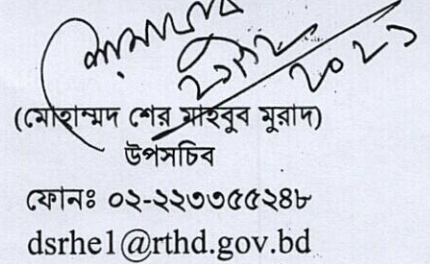 ২০২১
(মোহাম্মদ শের মাহবুব মুরাদ)
উপসচিব
ফোনঃ ০২-২২৩৩৫৫২৪৮
dsrhe1@rthd.gov.bd